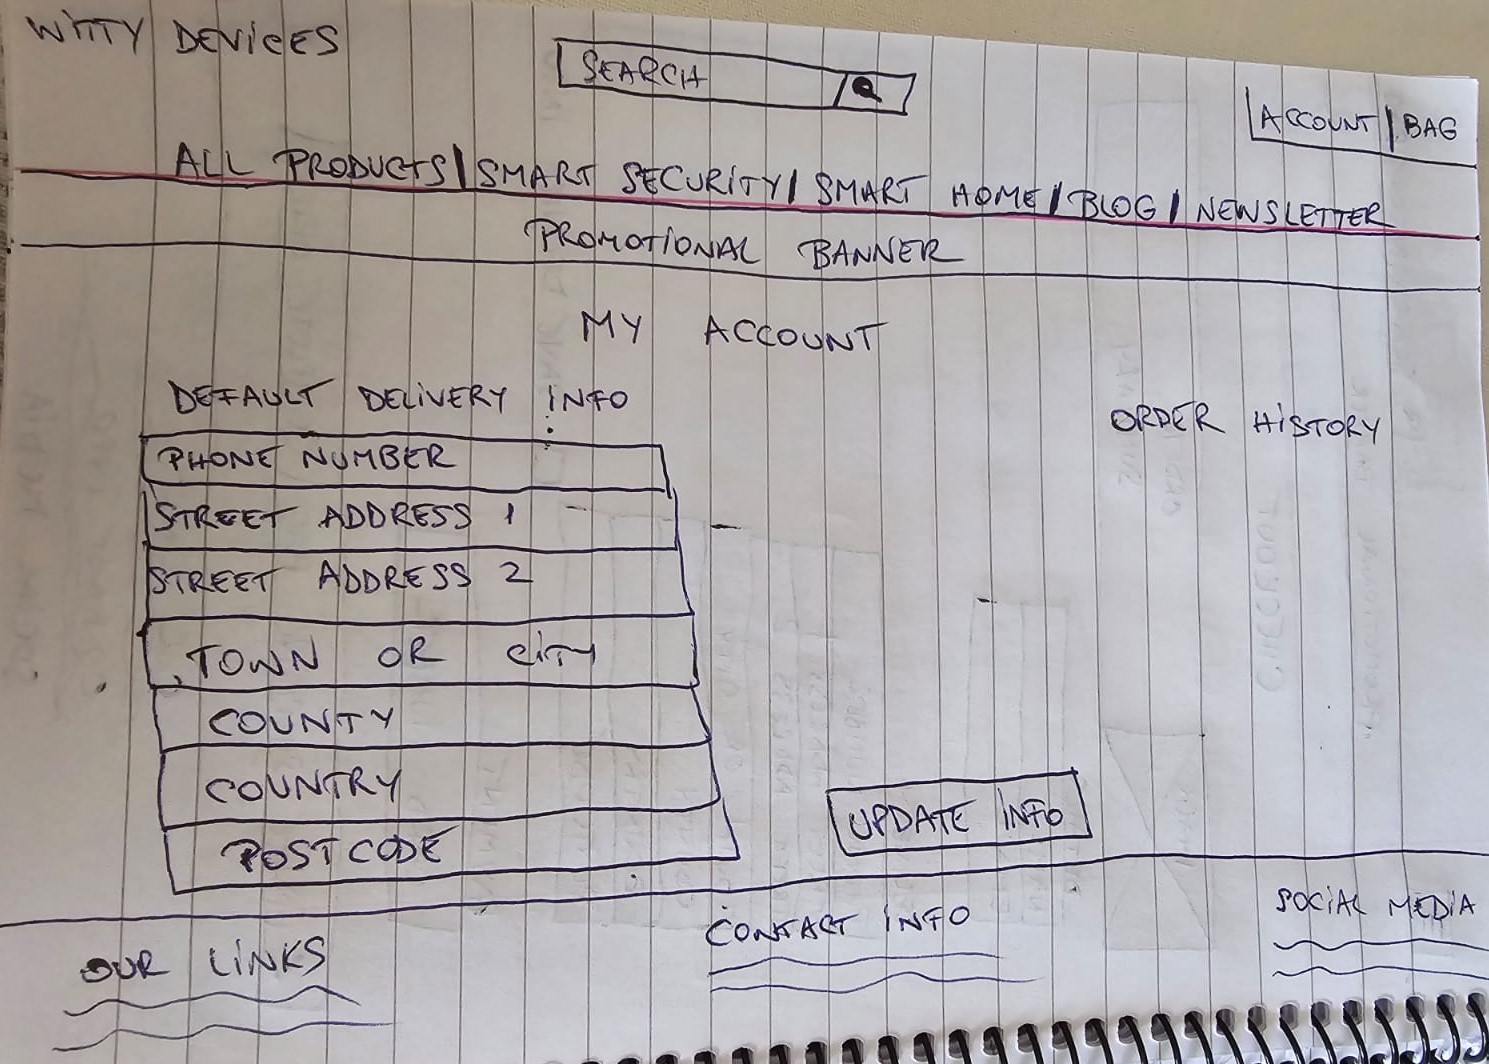 WITTY DEVICES
SEARCH
ACCOUNT | BAG
ALL PRODUCTS | SMART SECURITY | SMART HOME | BLOG | NEWSLETTER
PROMOTIONAL BANNER
MY ACCOUNT
DEFAULT DELIVERY INFO
ORDER HISTORY
PHONE NUMBER
STREET ADDRESS 1
STREET ADDRESS 2
TOWN OR CITY
COUNTY
COUNTRY
POSTCODE
UPDATE INFO
OUR LINKS
CONTACT INFO
SOCIAL MEDIA